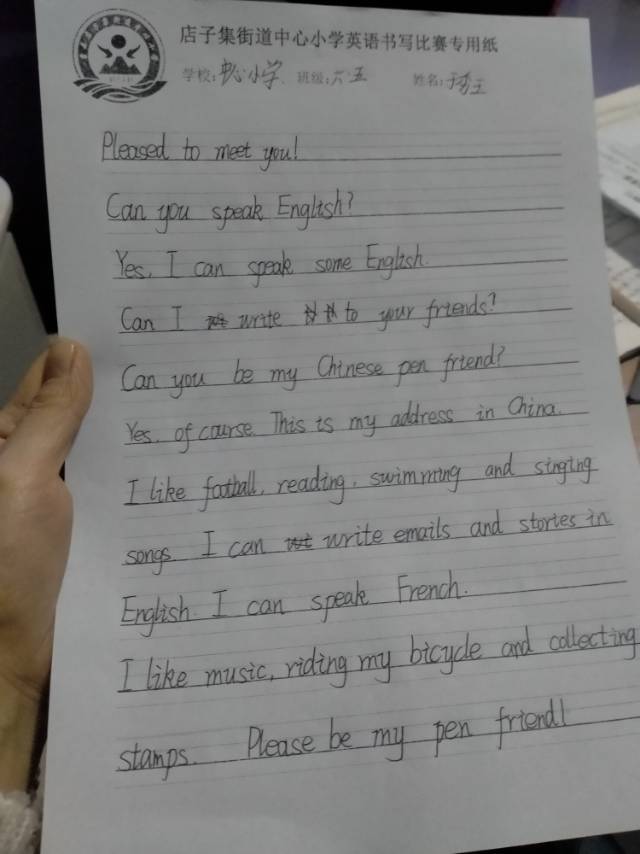 店子集街道中心小学英语书写比赛专用纸
学校:中心小学 班级:六五 姓名:
Pleased to meet you!
Can you speak English?
Yes, I can speak some English.
Can I write to your friends?
Can you be my Chinese pen friend?
Yes, of course. This is my address in China.
I like football, reading, swimming and singing
songs. I can write emails and stories in
English. I can speak French.
I like music, riding my bicycle and collecting
stamps. Please be my pen friend!